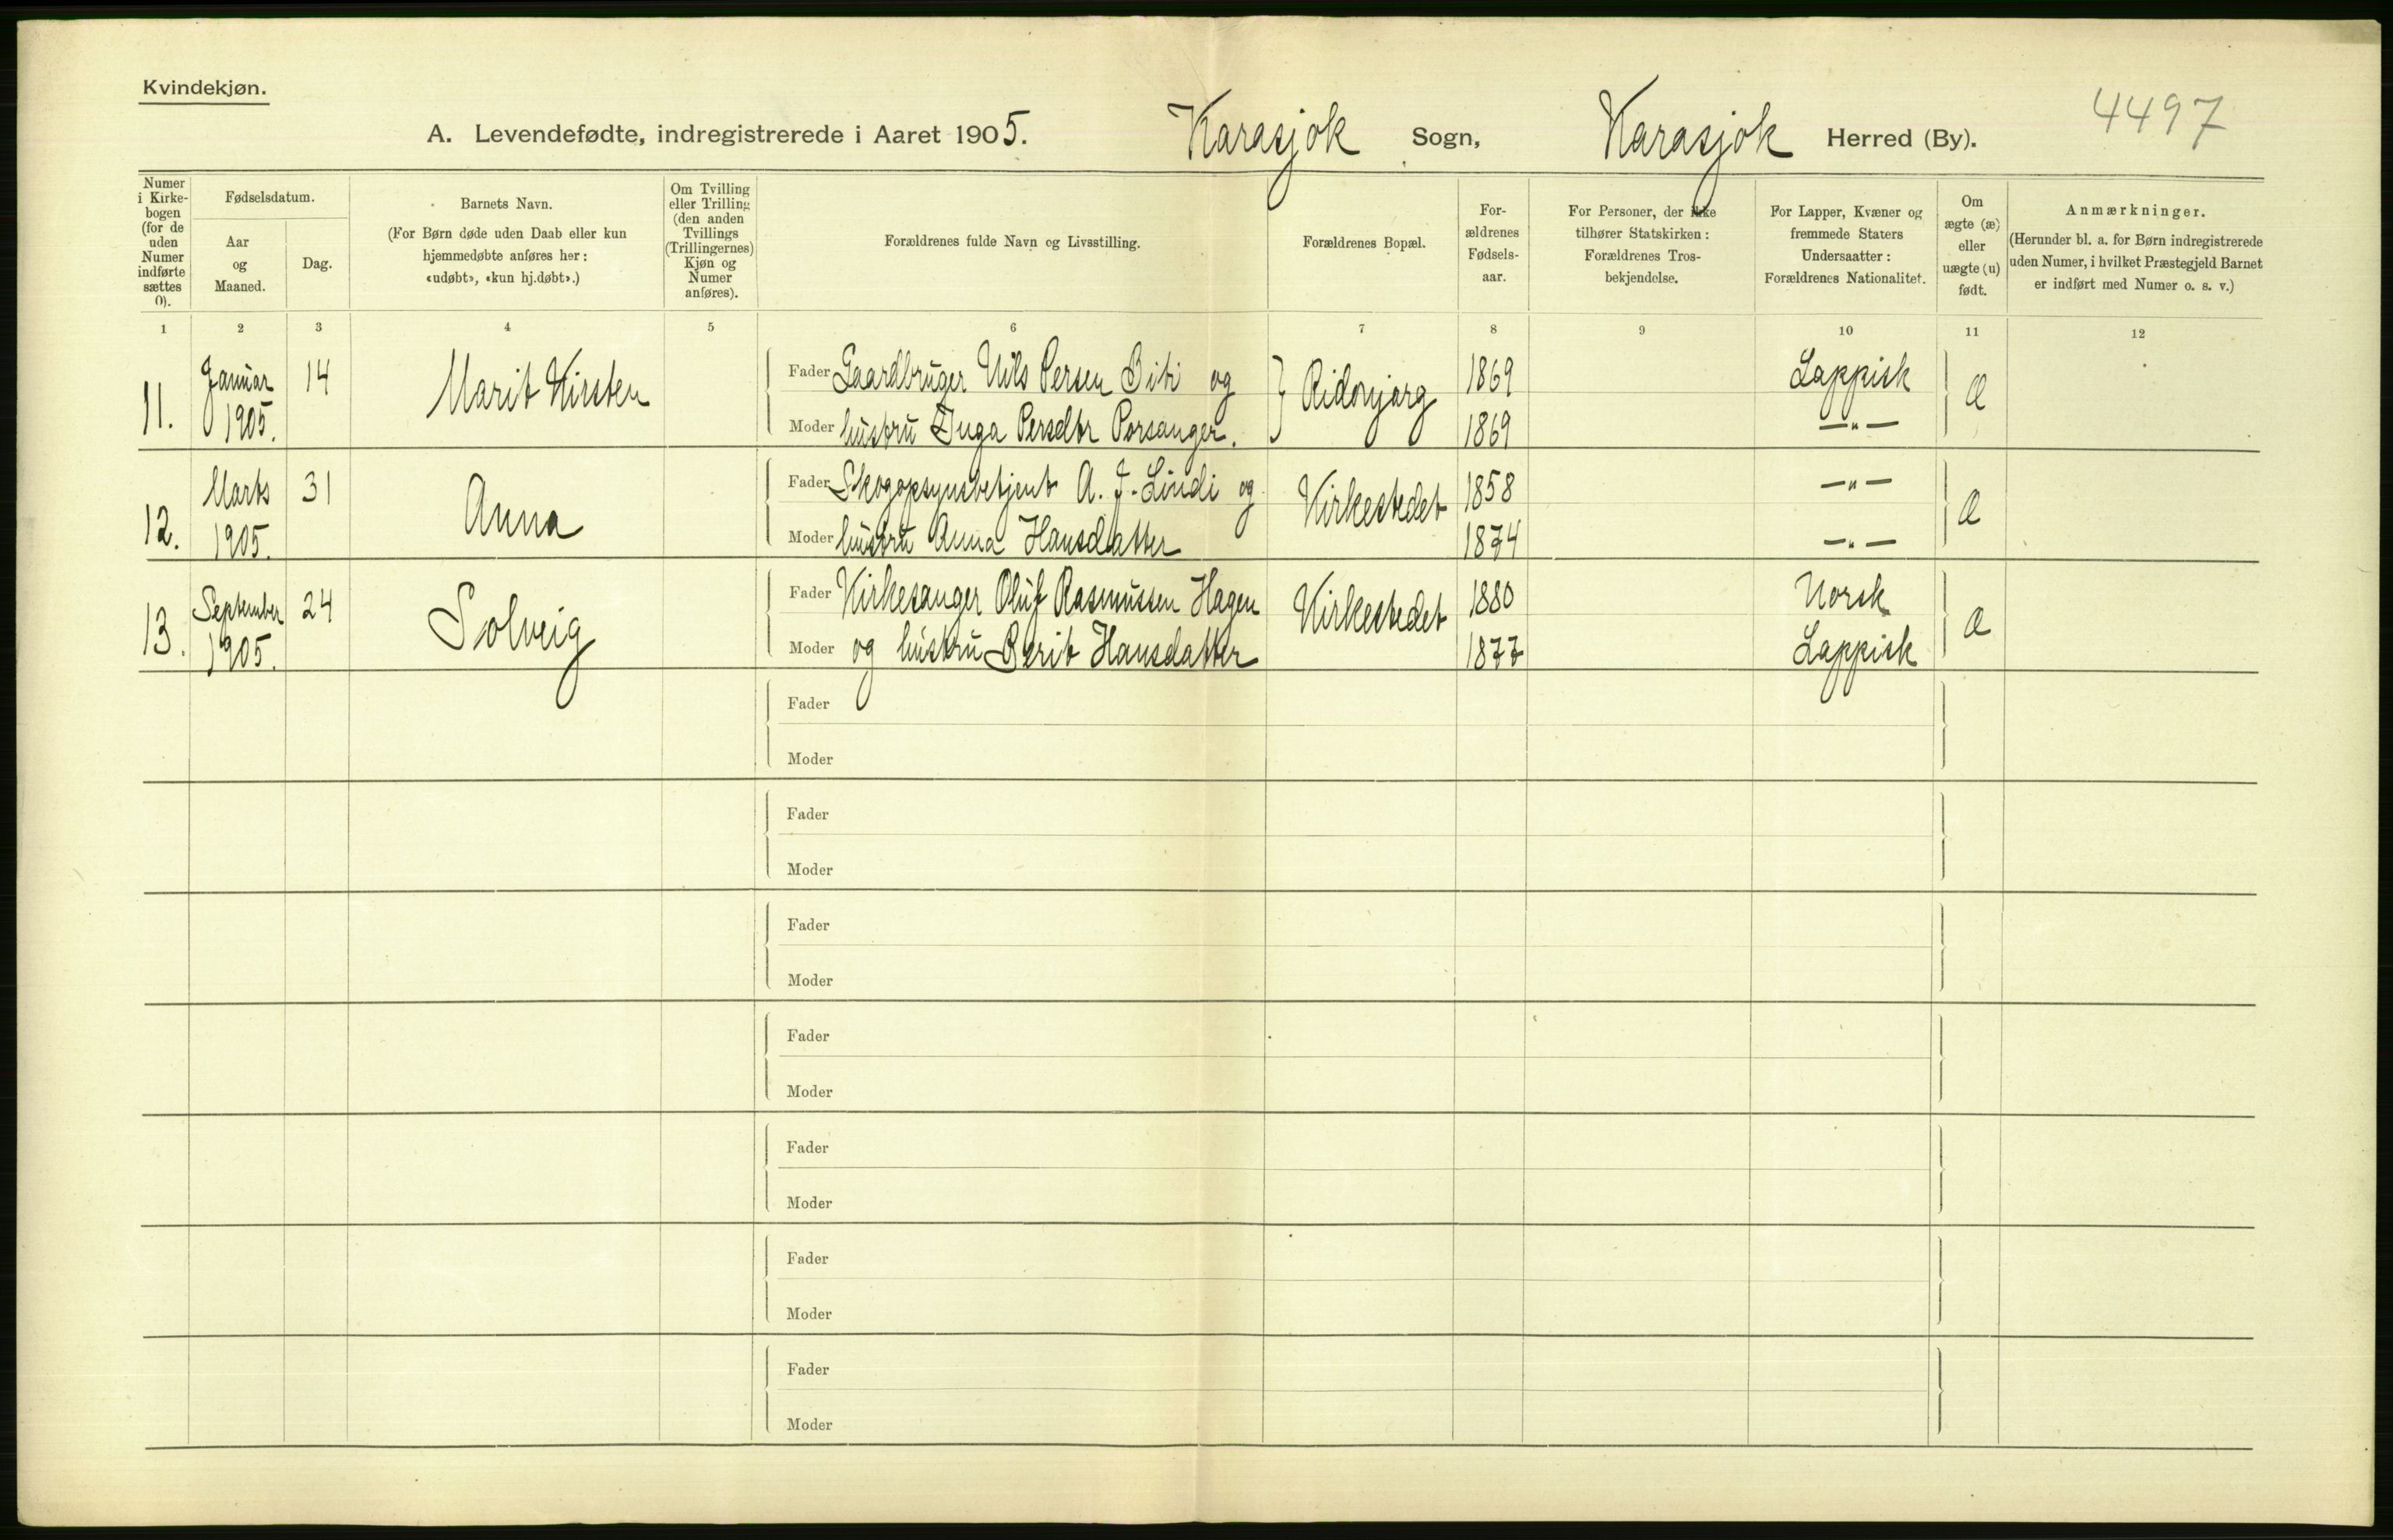 Kvindekjøn.
4497
A. Levendefødte, indregistrerede i Aaret 1905. Karasjok Sogn, Karasjok Herred (By).
Numer i Kirkebogen (for de uden Numer indførte sættes 0).
Fødselsdatum.
Aar og Maaned.
Dag.
Barnets Navn.
(For Børn døde uden Daab eller kun
hjemmedøbte anføres her:
«udøbt», «kun hj.døbt».)
Om Tvilling
eller Trilling
(den anden
Tvillings
(Trillingernes)
Kjøn og
Numer
anføres).
Forældrenes fulde Navn og Livsstilling.
Forældrenes Bopæl.
For-
ældrenes
Fødsels-
aar.
For Personer, der ikke
tilhører Statskirken:
Forældrenes Tros-
bekjendelse.
For Lapper, Kvæner og
fremmede Staters
Undersaatter:
Forældrenes Nationalitet.
Om
ægte (æ)
eller
uægte (u)
født.
Anmærkninger.
(Herunder bl. a. for Børn indregistrerede
uden Numer, i hvilket Præstegjeld Barnet
er indført med Numer o. s. v.)
1 2 3 4 5 6 7 8 9 10 11 12
11. Januar 1905. 14 Marit Kirsten
Fader Gaardbruger Nils Persen Biti og Ridonjarg 1869 Lappisk æ
Moder hustru Inga Persdtr Porsanger. 1869 —"—
12. Marts 1905. 31 Anna
Fader Skogopsynsbetjent A. J. Lindi og Kirkestedet 1858 —"— æ
Moder hustru Anna Hansdatter 1874 —"—
13. September 1905. 24 Solveig
Fader Kirkesanger Oluf Rasmussen Hagen Kirkestedet 1880 Norsk æ
Moder og hustru Berit Hansdatter 1877 Lappisk
Fader
Moder
Fader
Moder
Fader
Moder
Fader
Moder
Fader
Moder
Fader
Moder
Fader
Moder